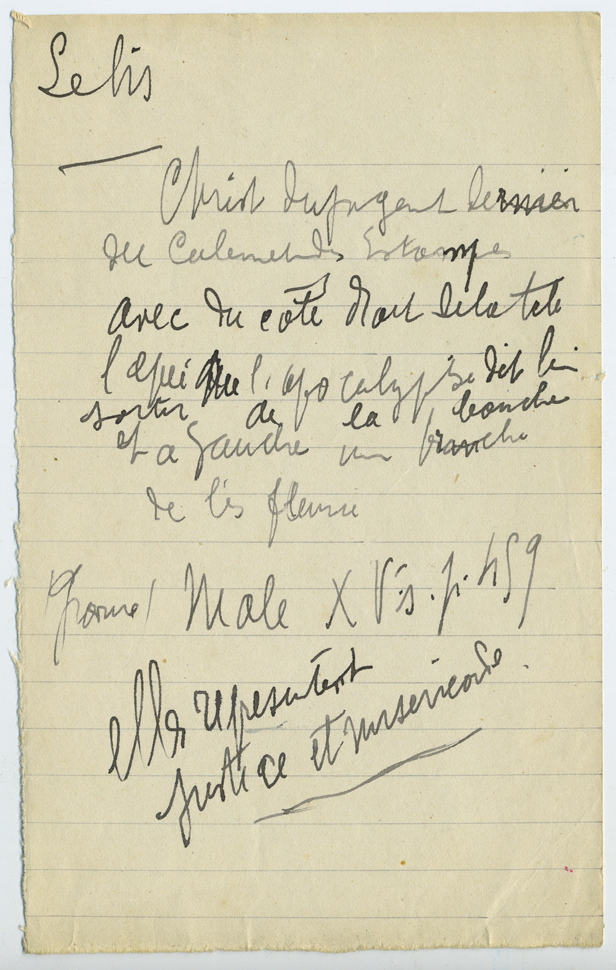 Le lis
Christ du jugent dernier
du Cabinet des Estampes
avec du côté droit de la tete
l'epée que l'apocalypse dit lui
sortir de la bouche
et a gauche un branche
de lis fleurie
Male XVe s. p. 459
elles representent
justice et misericorde.